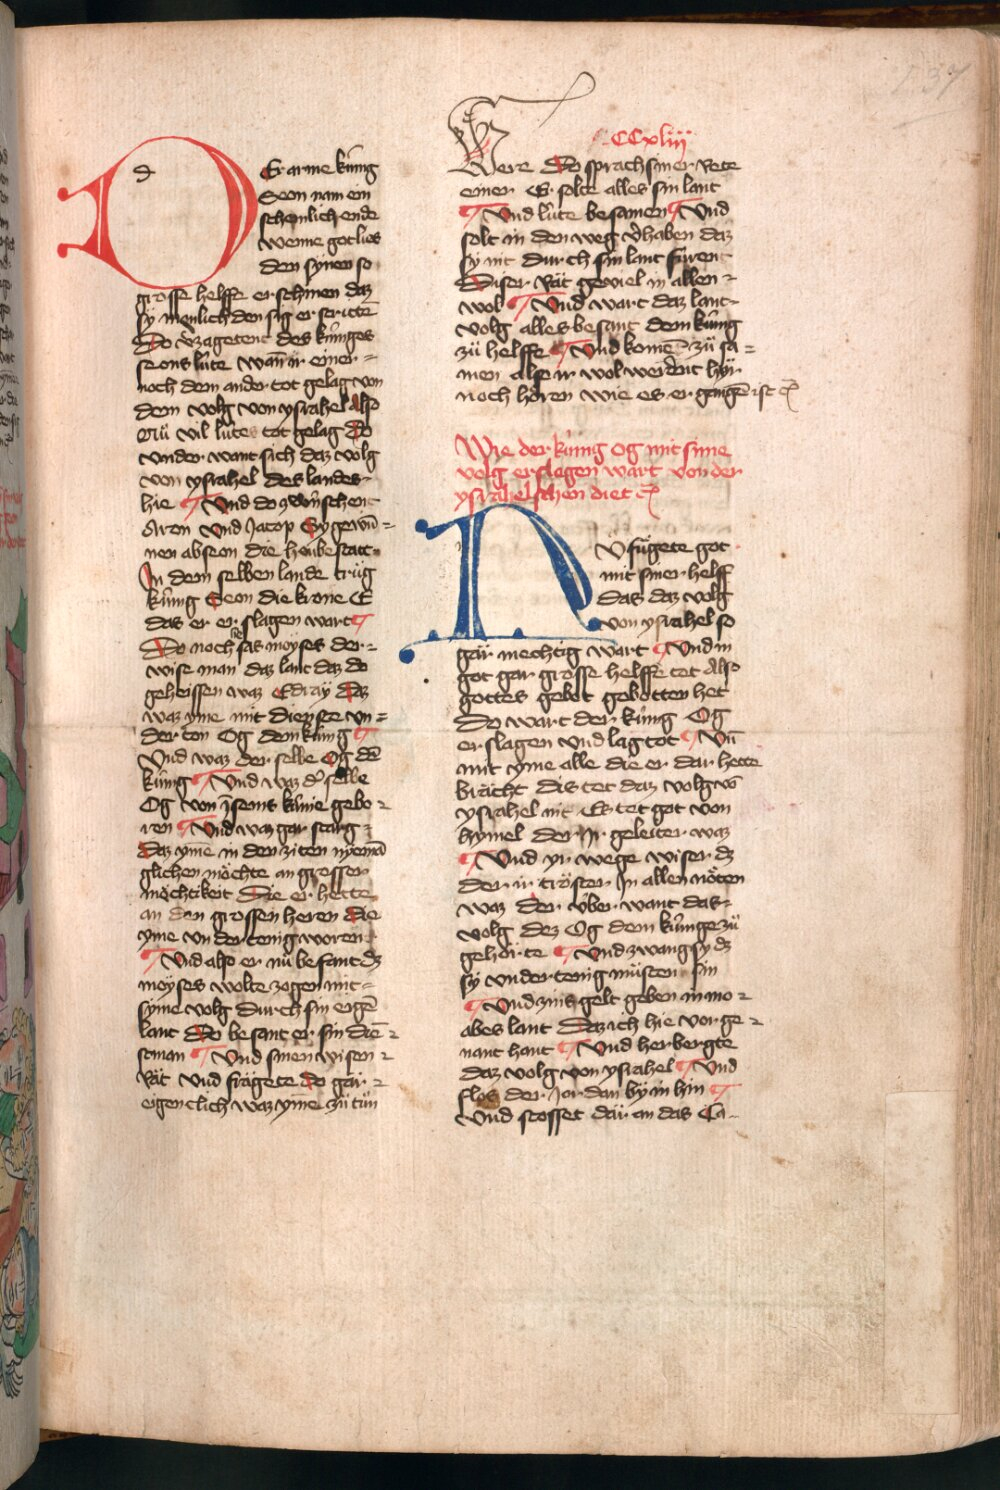 DEr arme kúnig
Seon nam ein
schemlich ende
wenne got lies
den synen so
grosse helffe erschinen daz
sÿ menlich den sig erstritten
Do v̄zagetent des kúniges
seons lúte wan̄ ir einer
noch dem ander tot gelag von
dem volg von ysrahel Also
vil lútes tot gelag Do
vnder want sich daz volg
von ysrahel des landes
hie ¶ Vnd do
Aron Vnd Jacop Sy gewn̄=
nen abseon die
In dem selben lande trůg
kúnig Seon die krone E
das er er slagen wart ¶
Do noch sas moyses der
wise man daz lant daz do
geheissen waz Edraÿ Daz
waz yme mit dienste vn=
der ton Og dem kúnig ¶
Vnd waz der selbe Og dē
kúnig ¶ Vnd waz dˢ selbe
Og von kúnie gebo=
ren ¶ Vnd waz gar starg
Daz yme in den ziten nyemā
glichen möchte an grosser
möchtikeit Die er hette
an den grossen heren die
yme vndertenig woren
¶ Vnd also er nů befant dz
moÿses wolte zogen mit=
syme volg durch sin eigē
lant Do besant er sin diē=
stman ¶ Vnd sinen wisen
Rät Vnd frägete do gar
eigenclich waz yme zů tůn
CCxliij
Were Do sprach siner Rete
einer Er solte alles sin lant
¶ Vnd lúte besamen ¶ Vnd
solt in den weg v̄haben daz
sy nit durch sin lant fúrent
Diser Rät geviel in allen
wol ¶ Vnd wart daz lant=
volg alles besant dem kúnig
zů helffe ¶ Vnd komē zů sa=
men also ir wol werdent hÿr
noch hören wie es er gangē ist
Wie der kúnig Og mit sime
volg erslegen wart von der
ysrahelschen diet
NV fůgete got
mit siner helff
das daz volg
von ysrahel so
gar mechtig wart ¶ Vnd in
got gar grosse helffe tet Also
gottes gebot gebotten het
Do wart der kúnig Og
erslagen Vnd lag tot ¶ Vn̄
mit yme alle die er dar hette
bracht Dis tet daz volg vō
ysrahel nit Es tet got von
hymel der ir geleiter waz
¶ Vnd yr wege wiser dz
der ir tröster In allen nöten
waz Der vber want das
volg dez Og dem kúnge zů
gehörte ¶ Vnd zwang sy dz
sÿ vndertenig můsten sin
¶ Vnd zins gelt geben in mo=
abes lant Daz ich hie vor ge=
nant hant ¶ Vnd herbergte
daz volg von ysrahel ¶ Vnd
flos der Jordan by in hin ¶
Vnd stosset dar an das Ca-